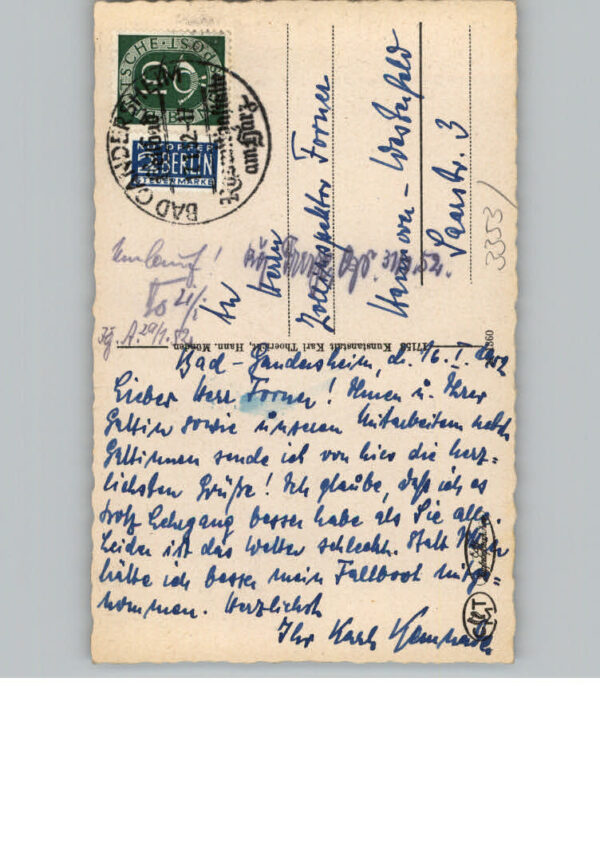 DEUTSCHE
10
NOTOPFER
2 BERLIN
STEUERMARKE
BAD GANDERSHEIM
am Harz
Umlauf!
An
Herrn
Zollinspektor Forner
Hannover-Westerfeld
Saarstr. 3
3353
17158 Kunstanstalt Karl Thoericht, Hann. Münden
Bad-Gandersheim, d. 16. I. 1952
Lieber Herr Forner! Ihnen u. Ihrer
Gattin sowie unseren Mitarbeitern nebst
Gattinnen sende ich von hier die herz-
lichsten Grüße! Ich glaube, daß ich es
trotz Lehrgang besser habe als Sie alle.
Leider ist das Wetter schlecht. Statt
hätte ich besser mein Faltboot mitge-
nommen. Herzlichst
Ihr Karl